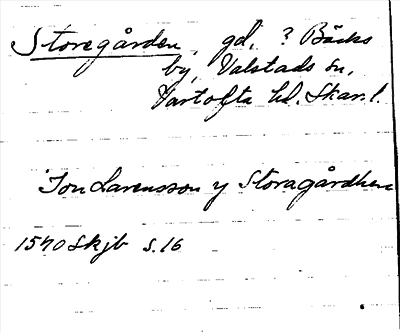 Storegården, gd, ? Bäcks
by, Valstads sn,
Vartofta hd. Skar. l.
Jon Larensson y Storagårdhen
1540 Skjb s. 16